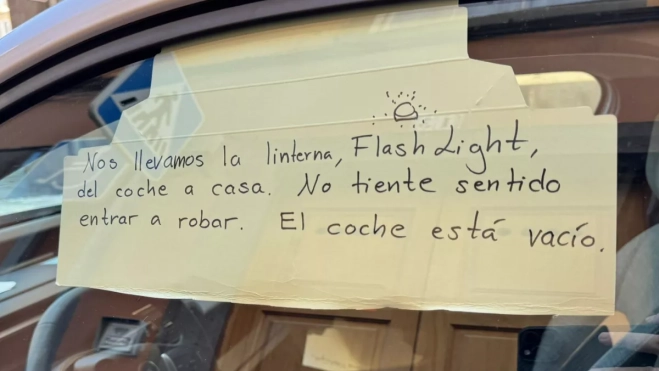 Nos llevamos la linterna, Flash Light,
del coche a casa. No tiente sentido
entrar a robar. El coche está vacío.